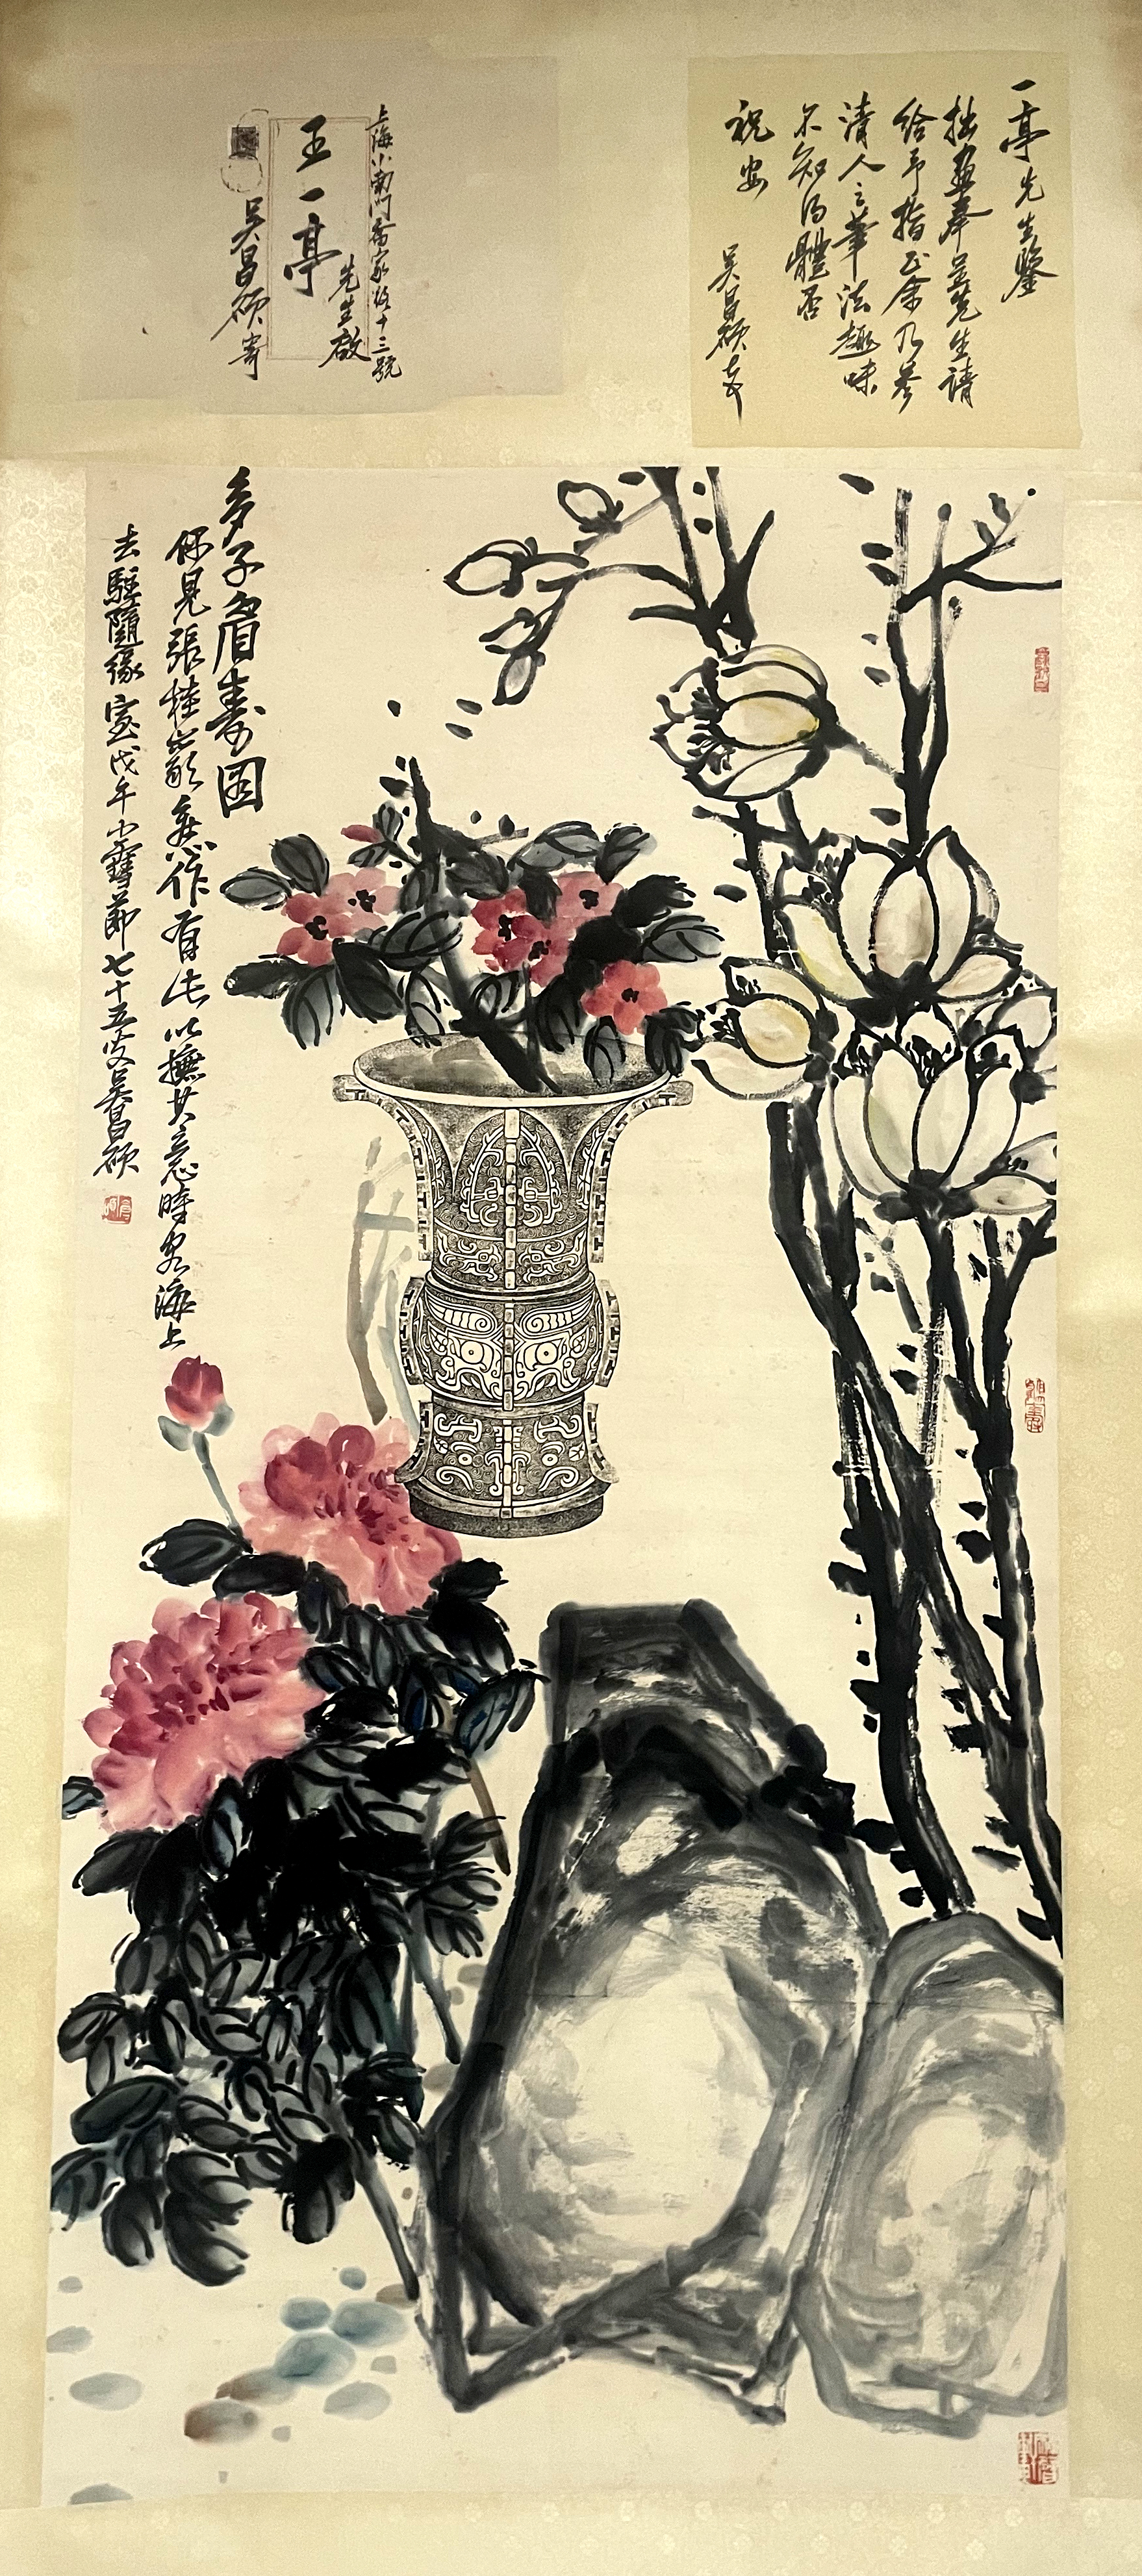 一亭先生鑒
拙畫奉呈先生請
給予指正余乃參
清人之筆法趣味
不知得體否
祝安
吳昌碩
上海小南門喬家路十三號
王一亭
先生啟
吳昌碩寄
多子眉壽圖
偶見張桂巖無作有法以撫其意時客海上
去駐隨緣室戊午小雪節七十五叟吳昌碩